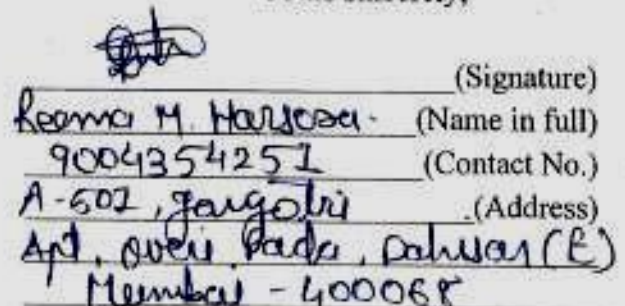 (Signature)
Reema M. Harsora. (Name in full)
9004354251 (Contact No.)
A-501, Gangotri (Address)
Apt, Overi Pada, Dahisar (E)
Mumbai - 400068